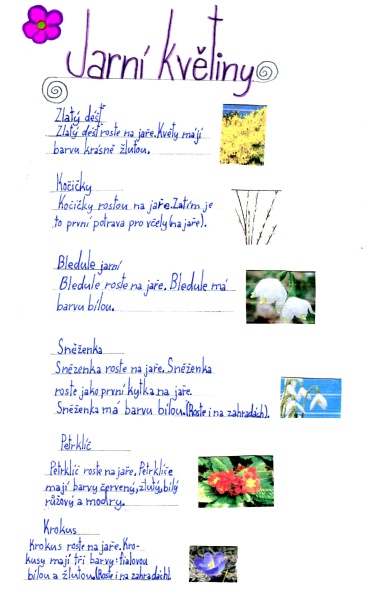 Jarní květiny
Zlatý déšť
Zlatý déšť roste na jaře. Květy mají
barvu krásně žlutou.
Kočičky
Kočičky rostou na jaře. Zatím je
to první potrava pro včely (na jaře).
Bledule jarní
Bledule roste na jaře. Bledule má
barvu bílou.
Sněženka
Sněženka roste na jaře. Sněženka
roste jako první kytka na jaře.
Sněženka má barvu bílou. (Roste i na zahradách).
Petrklíč
Petrklíč roste na jaře. Petrklíče
mají barvy červený, žlutý, bílý
růžový a modrý.
Krokus
Krokus roste na jaře. Kro-
kusy mají tři barvy: fialovou
bílou a žlutou. (Roste i na zahradách).